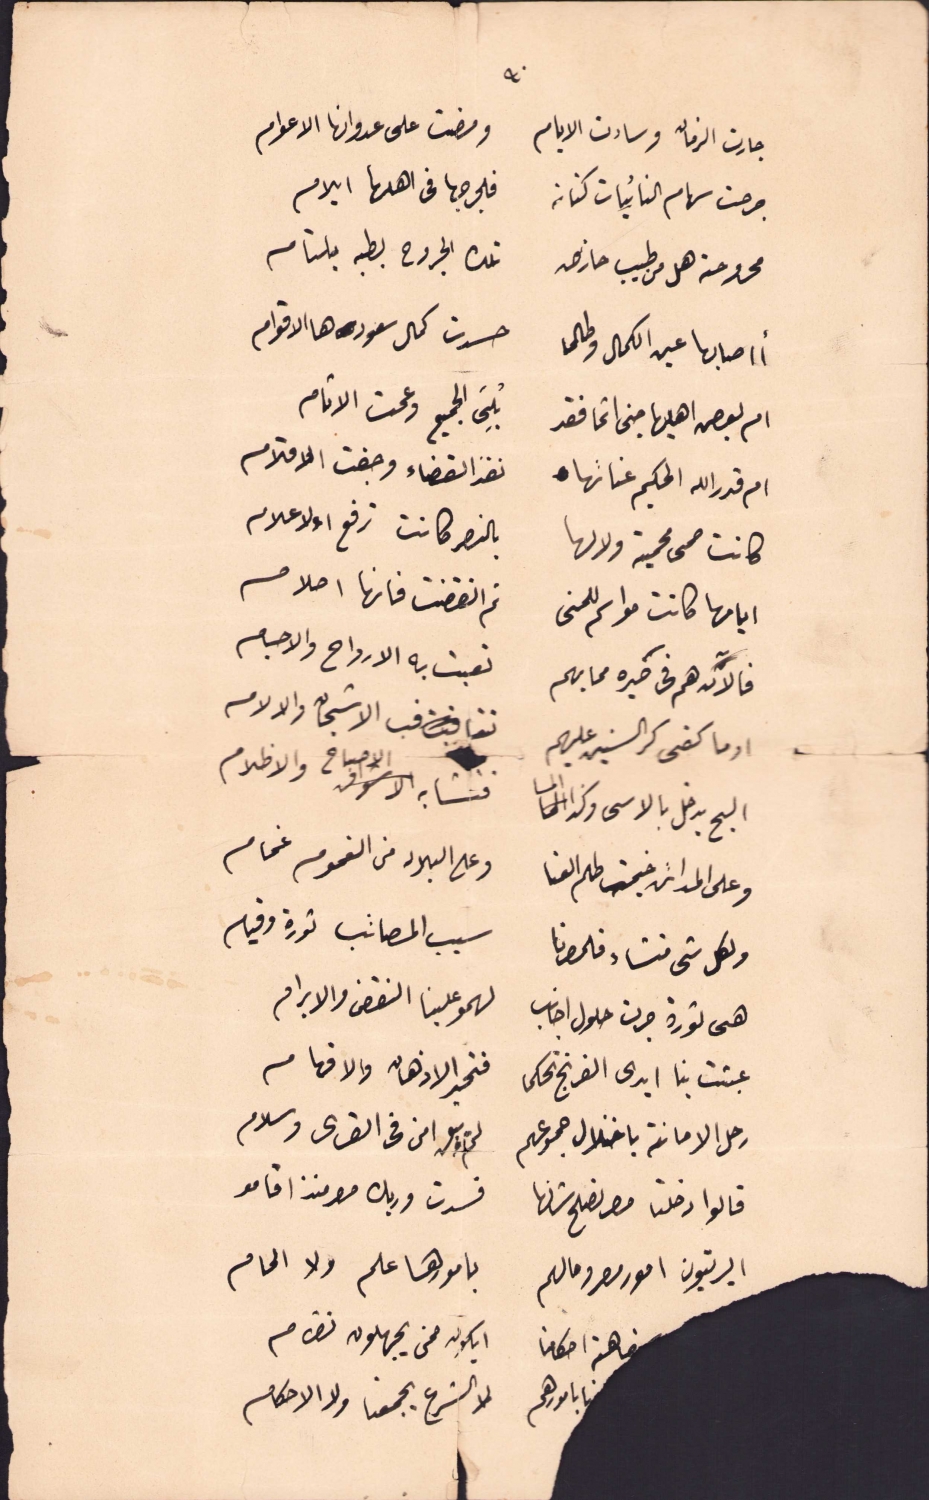 جارت الزمان وسادت الايام ومضت على عدوانها الاعوام
جرحت سهام النائبات كنانة فلجرحها فى اهلها ايلام
مجروحة هل من طبيب حاذق تلك الجروح بطبه يلتام
أاصابها عين الكمال وطالما حسدت كمال سعودها الاقوام
ام بعض اهليها جنى اثما فقد بُلِىَ الجميع وعمت الاثام
ام قدر الله الحكيم عناءها نفذ القضاء وجفت الاقلام
كانت حمى محمية ولالها بالنصر كانت ترفع الاعلام
ايامها كانت مواسم للمنى ثم انقضت فكانها احلام
فالآن هم فى حيره مما بهم تعبت به الارواح والاجسام
اوما كفى كر السنين عليهم الاشجان والالام
الصبح يدخل بالاسى وكذا المسا فتشابه الاصباح والاظلام
وعلى المدائن خيمت ظلم العنا وعلى البلاد من الغموم غمام
ولكل شى منشاء فلمصرنا سبب المصائب ثورة وقيام
هى ثورة جرت حلول اجانب لهمو علينا النقض والابرام
عبثت بنا ايدى الفرنج تحكما فتحير الاذهان والافهام
رحل الامانة باختلال جموعهم امن فى القرى وسلام
قالوا دخلنا مصر نصلح شانها فسدت وربك مصر منذ اقامو
ايرتبون امور مصر ومالهم بامورها علم ولا المام
احكامنا ايكون ممن يجهلون نظام
بامورهم لا الشرع يجمعنا ولا الاحكام